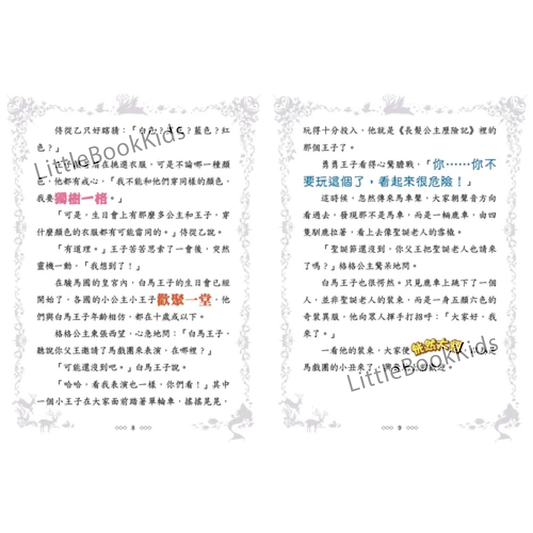 侍從乙只好瞎猜：「白色？黃色？藍色？紅
色？」
後在挑選衣服，可是不論哪一種顏
色，他都有戒心，「我不能和他們穿同樣的顏色，
我要獨樹一格。」
「可是，生日會上有那麼多公主和王子，穿
什麼顏色的衣服都有可能雷同的。」侍從乙說。
「有道理。」王子苦苦思索了一會後，突然
靈機一動，「我想到了！」
在駿馬國的皇宮內，白馬王子的生日會已經
開始了，各國的小公主小王子歡聚一堂，他
們與白馬王子年齡相仿，都在十歲或以下。
格格公主東張西望，心急地問：「白馬王子，
聽說你父王邀請了馬戲團來表演，在哪裡？」
「可能還沒到吧。」白馬王子說。
「哈哈，看我表演也一樣，你們看！」其中
一個小王子在大家面前踏著單輪車，搖搖晃晃，
8
玩得十分投入，他就是《長髮公主歷險記》裡的
那個王子了。
勇勇王子看得心驚膽戰，「你……你不
要玩這個了，看起來很危險！」
這時候，忽然傳來馬車聲，大家朝聲音方向
看過去，發現那不是馬車，而是一輛鹿車，由四
隻馴鹿拉著，看上去像聖誕老人的雪橇。
「聖誕節還沒到，你父王把聖誕老人也請來
了嗎？」格格公主驚呆地問。
白馬王子也很愕然。只見鹿車上跳下了一個
人，並非聖誕老人的裝束，而是一身五顏六色的
奇裝異服，他向眾人揮手打招呼：「大家好，我
來了。」
一看他的裝束，大家便恍然大悟，
馬戲團的小丑來了，
9
LittleBookKids
LittleBookKids
LittleBookKids
LittleBookKids